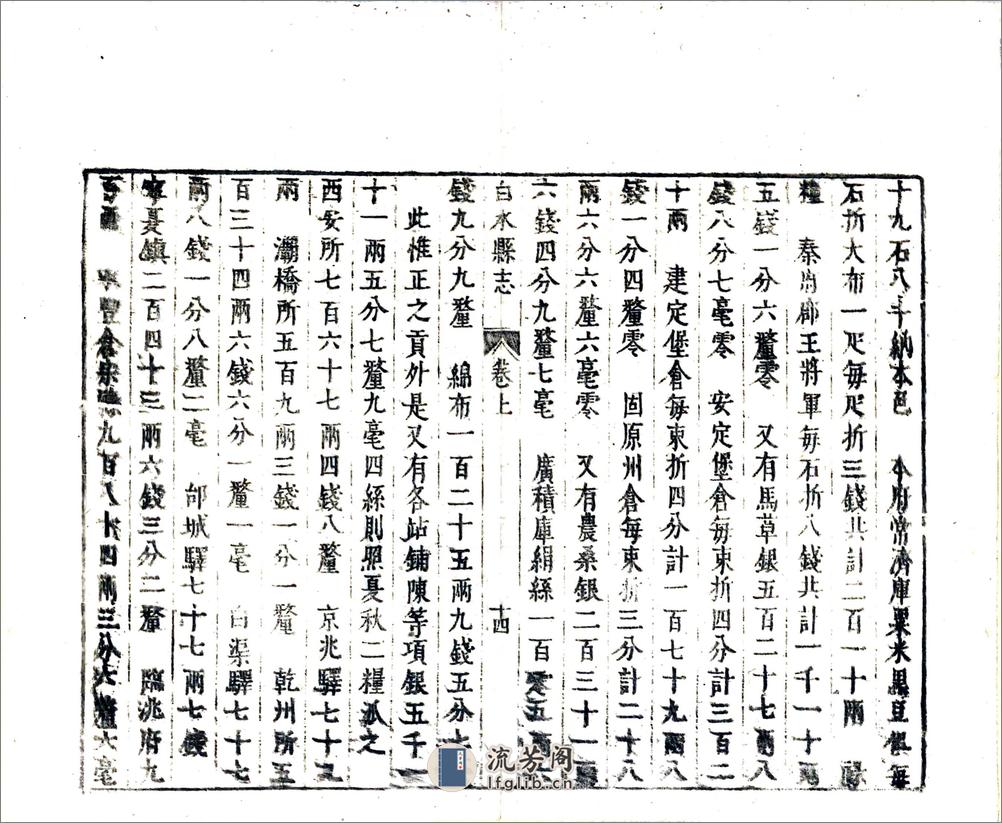 十九石八斗納本色　本府常濟庫粟米黑豆糧每
石折大布一疋每疋折三錢共計二百一十兩　祿
糧　秦府郡王將軍每石折八錢共計一千一十兩
五錢一分六釐零　又有馬草銀五百二十七兩八
錢八分七毫零　安定堡倉每束折四分計三百二
十兩　建定堡倉每束折四分計一百七十九兩八
錢一分四釐零　固原州倉每束折三分計二十八
兩六分六釐六毫零　又有農桑銀二百三十一兩
六錢四分九釐七毫　廣積庫絹絲一百零五兩
白水縣志　卷上　十四
錢九分九釐　綿布一百二十五兩九錢五分
此惟正之貢外是又有各站鋪陳等項銀五千一
十一兩五分七釐九毫四絲則照夏秋二糧派之
西安所七百六十七兩四錢八釐　京兆驛七十五
兩　灞橋所五百九兩三錢一分一釐　乾州所五
百三十四兩六錢六分一釐一毫　白渠驛七十七
兩八錢一分八釐二毫　邰城驛七十七兩七錢
寧夏鎮二百四十三兩六錢三分二釐　臨洮府九
百兩　豐倉九百八十四兩三分六釐六毫
流芳阁
lfglib.cn